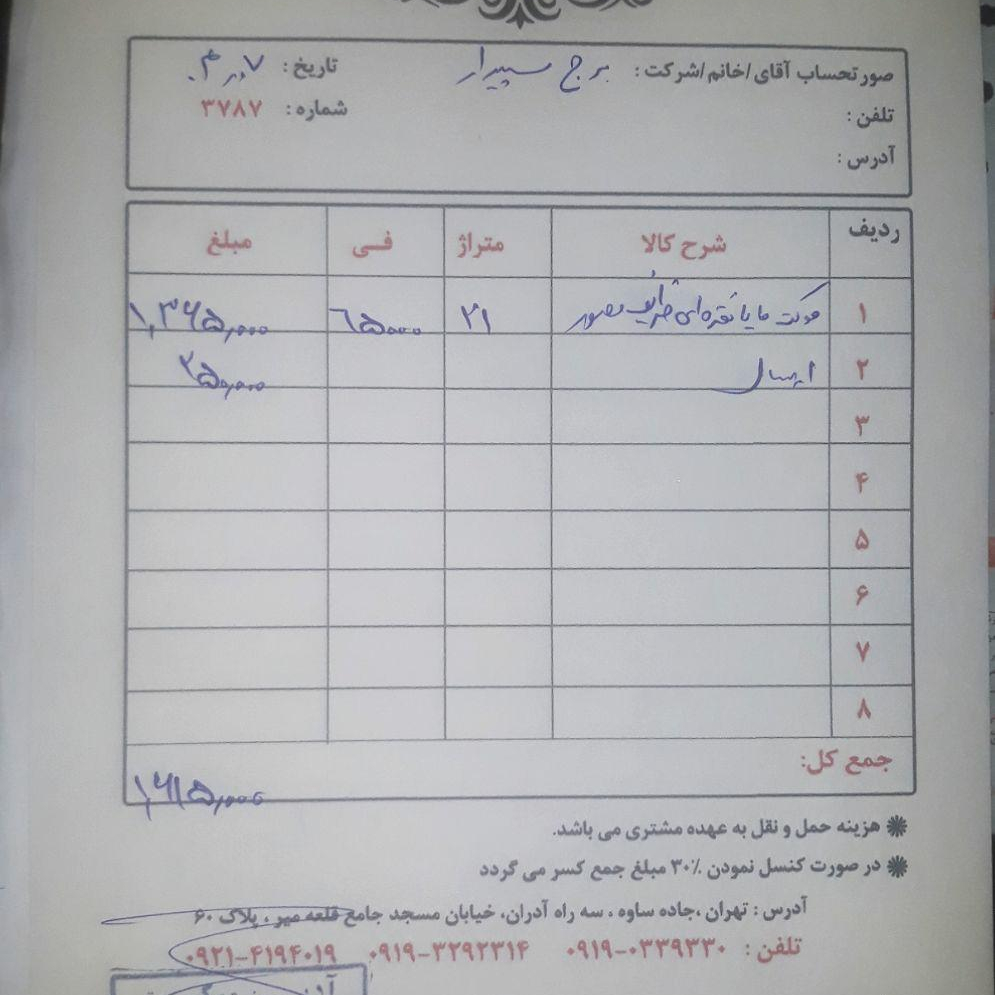 صورتحساب آقای/خانم/شرکت: برج سپیدار تاریخ:
تلفن: شماره: ۳۷۸۷
آدرس:
ردیف شرح کالا متراژ فی مبلغ
۱ موکت مایا نقره‌ای ظریف مصور ۲۱ ۶۵۰۰۰ ۱,۳۶۵,۰۰۰
۲ ارسال ۲۵۰,۰۰۰
۳
۴
۵
۶
۷
۸
جمع کل: ۱,۶۱۵,۰۰۰
هزینه حمل و نقل به عهده مشتری می باشد.
در صورت کنسل نمودن ۳۰٪ مبلغ جمع کسر می گردد
آدرس: تهران، جاده ساوه، سه راه آدران، خیابان مسجد جامع قلعه میر، پلاک ۶۰
تلفن: ۰۹۱۹-۰۳۳۹۳۳۰ ۰۹۱۹-۳۲۹۲۳۱۴ ۰۹۲۱-۴۱۹۴۰۱۹